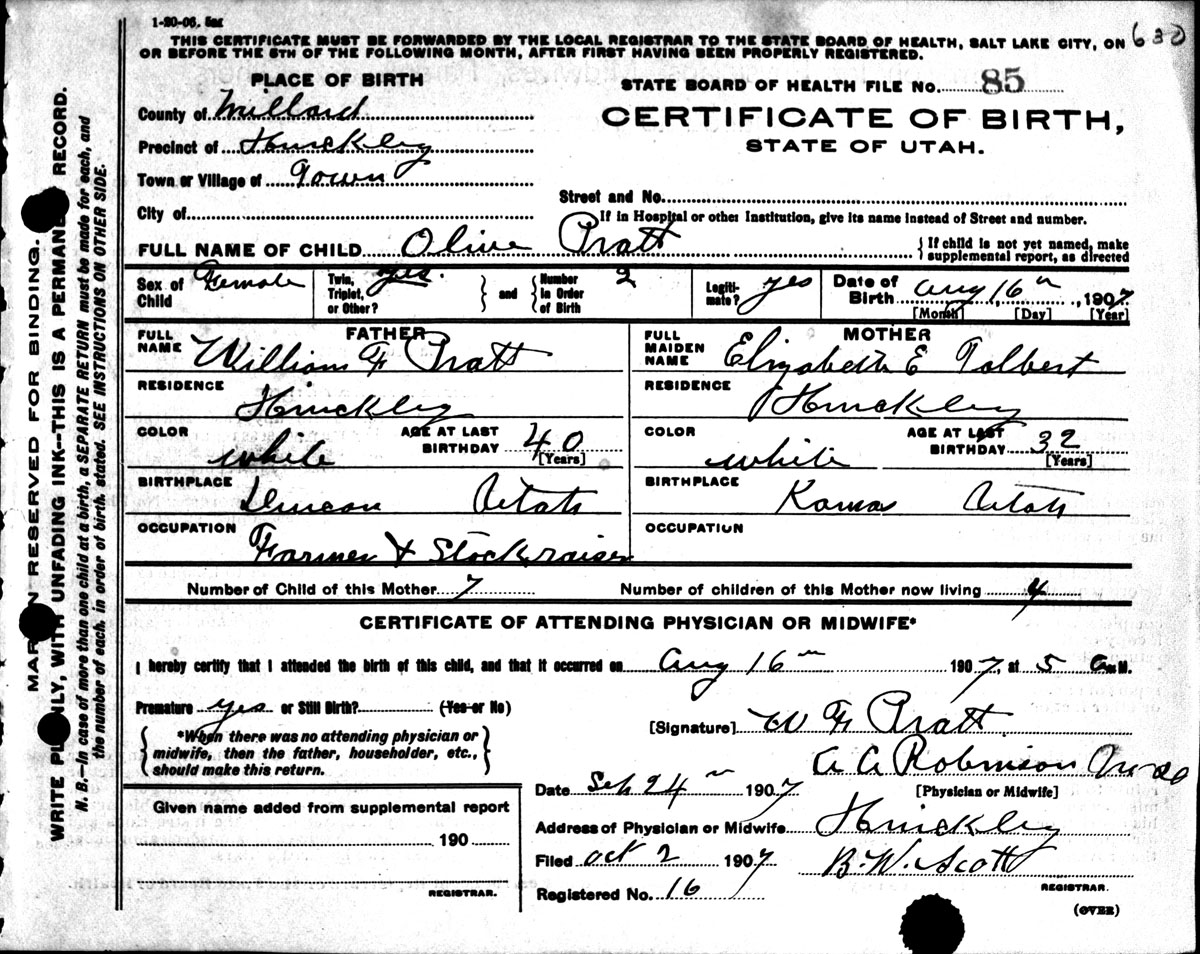 1-20-06. 5m
THIS CERTIFICATE MUST BE FORWARDED BY THE LOCAL REGISTRAR TO THE STATE BOARD OF HEALTH, SALT LAKE CITY, ON
OR BEFORE THE 5TH OF THE FOLLOWING MONTH, AFTER FIRST HAVING BEEN PROPERLY REGISTERED.
630
PLACE OF BIRTH
STATE BOARD OF HEALTH FILE NO. 85
County of Millard
CERTIFICATE OF BIRTH,
Precinct of Hinckley
STATE OF UTAH.
Town or Village of Town
Street and No.
City of
If in Hospital or other Institution, give its name instead of Street and number.
FULL NAME OF CHILD Olive Pratt
If child is not yet named, make
supplemental report, as directed
Sex of Child Female Twin, Triplet, or Other? yes. and Number in Order of Birth 2 Legiti- mate? yes Date of Birth Aug 16th, 1907
[Month] [Day] [Year]
FATHER
FULL NAME William F Pratt
RESIDENCE Hinckley
COLOR white AGE AT LAST BIRTHDAY 40 [Years]
BIRTHPLACE Utah
OCCUPATION Farmer & Stockraiser
MOTHER
FULL MAIDEN NAME Elizabeth E Tolbert
RESIDENCE Hinckley
COLOR white AGE AT LAST BIRTHDAY 32 [Years]
BIRTHPLACE Kamas Utah
OCCUPATION
Number of Child of this Mother 7 Number of children of this Mother now living 4
CERTIFICATE OF ATTENDING PHYSICIAN OR MIDWIFE*
I hereby certify that I attended the birth of this child, and that it occurred on Aug 16th 1907, at 5 a M.
Premature yes or Still Birth? (Yes or No)
*When there was no attending physician or
midwife, then the father, householder, etc.,
should make this return.
[Signature] W F Pratt
A A Robinson
[Physician or Midwife]
Date Sep 24th 1907
Address of Physician or Midwife Hinckley
Filed Oct 2 1907 B. W. Scott
Registered No. 16 REGISTRAR.
(OVER)
Given name added from supplemental report
190
REGISTRAR.
MARGIN RESERVED FOR BINDING.
WRITE PLAINLY, WITH UNFADING INK--THIS IS A PERMANENT RECORD.
N. B.--In case of more than one child at a birth, a SEPARATE RETURN must be made for each, and
the number of each, in order of birth, stated. SEE INSTRUCTIONS ON OTHER SIDE.